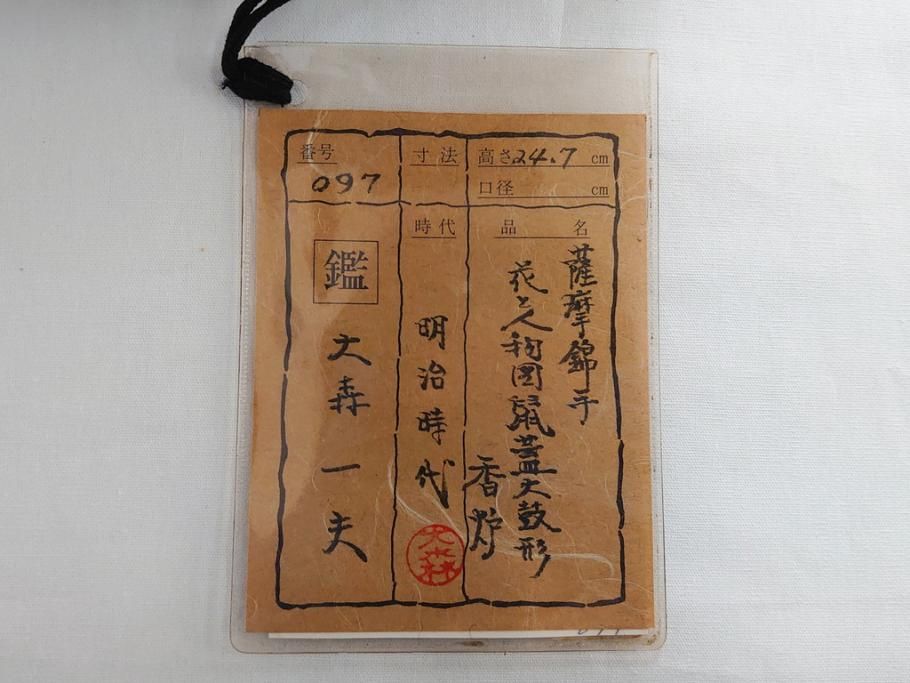 番号
097
寸法
高さ24.7 cm
口径 cm
時代
品名
薩摩錦手
花と人物図鼠蓋太鼓形
香炉
明治時代
鑑
大森一夫
大森